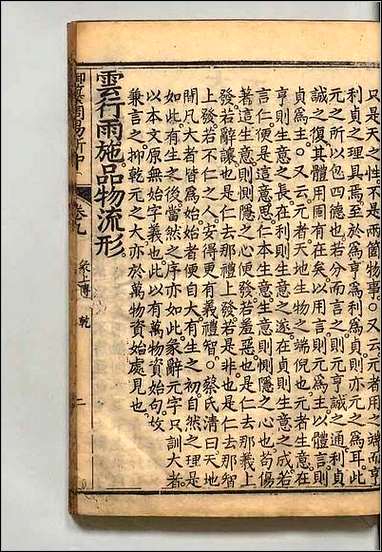 只是天之性不是兩箇物事。又云元者用之端而亨
利貞之理具焉至於為亨為利為貞則亦元之為耳此
元之所以包四德也若分而言之則元亨誠之通利貞
誠之復其體用固有在矣以用言則元為主以體言則
貞為主。又云元者天地生物之端倪也元者生意在
亨則生意之長在利則生意之遂在貞則生意之成若
言仁便是這意思仁本生意生意則惻隱之心也苟傷
著這生意則惻隱之心便發若羞惡也是仁去那義上
發若辭讓也是仁去那禮上發若是非也是仁去那智
上發若不仁之人安得更有義禮智。蔡氏清曰天地
間凡大者皆為始始者便自大有生之初自然之理是
如此有生之後當然之序亦如此彖辭元字只訓大者
以本文原無始字義也此以有萬物資始句故
兼言之抑乾元之大亦於萬物資始處見也
雲行雨施品物流形
御纂周易折中 卷九 彖上傳 乾 二